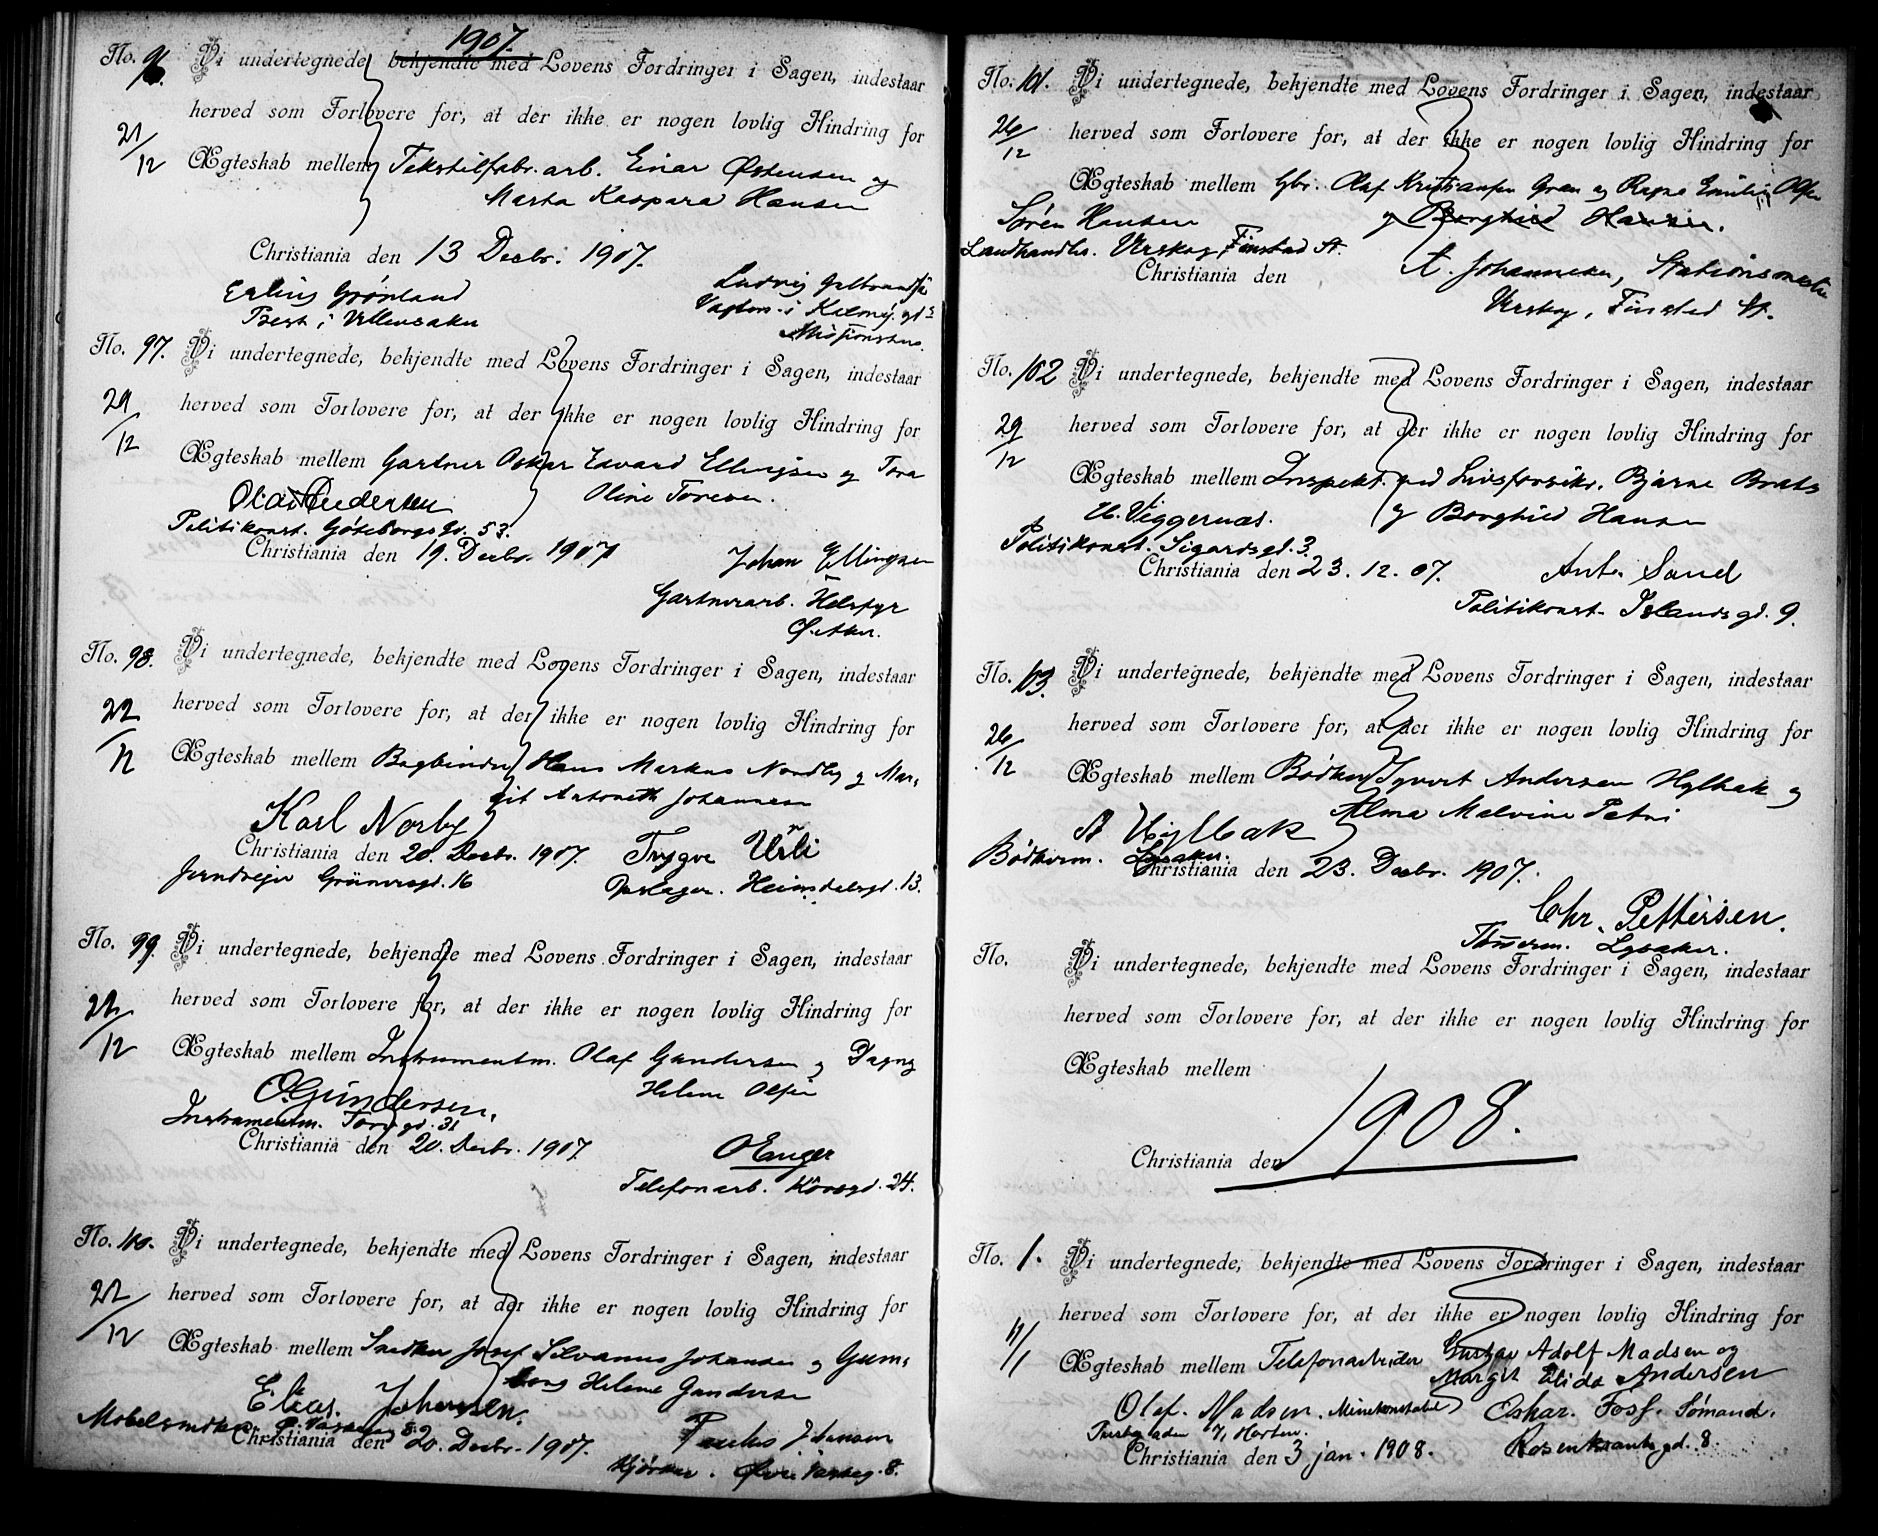 1907.
No. 96. Vi undertegnede, bekjendte med Lovens Fordringer i Sagen, indestaar
herved som Forlovere for, at der ikke er nogen lovlig Hindring for
21/12
Ægteskab mellem Tekstilfabr. arb. Einar Østensen og
Marta Kaspara Hansen
Christiania den 13 Decbr. 1907.
Erling Grønland
Ludvig
i Ullensaker
No. 97. Vi undertegnede, bekjendte med Lovens Fordringer i Sagen, indestaar
herved som Forlovere for, at der ikke er nogen lovlig Hindring for
29/12
Ægteskab mellem Gartner Oskar Edvard Ellingsen og Tora
Oline Toresen.
Olai Andersen
Politikonst. Göteborgsgd. 53.
Christiania den 19. Decbr. 1907
Johan Ellingsen
Gartnerarb. Helsfyr
Ø. Aker.
No. 98. Vi undertegnede, bekjendte med Lovens Fordringer i Sagen, indestaar
herved som Forlovere for, at der ikke er nogen lovlig Hindring for
22/12
Ægteskab mellem Bogbinder Hans Markus Nordby og Mar-
git Antonette Johannesen
Karl Norby
Christiania den 20. Decbr. 1907. Trygve Urli
Jerndreier Grünersgd. 16
Heimdalsgd. 13.
No. 99. Vi undertegnede, bekjendte med Lovens Fordringer i Sagen, indestaar
herved som Forlovere for, at der ikke er nogen lovlig Hindring for
22/12
Ægteskab mellem Instrumentm. Olaf Gundersen og Dagny
Helene Olsen
O. Gundersen,
Instrumentm. Torvgd. 31
Christiania den 20. Decbr. 1907.
O Enger
Telefonarb. Korsgd. 24.
No. 100. Vi undertegnede, bekjendte med Lovens Fordringer i Sagen, indestaar
herved som Forlovere for, at der ikke er nogen lovlig Hindring for
22/12
Ægteskab mellem Snedker Josef Silvanus Johansen og Gun-
borg Helene Gundersen
Elias. Johansen.
Møbelsnedker
Christiania den 20. Decbr. 1907.
Paulus Johansen
8.
No. 101. Vi undertegnede, bekjendte med Lovens Fordringer i Sagen, indestaar
herved som Forlovere for, at der ikke er nogen lovlig Hindring for
26/12
Ægteskab mellem Gbr. Olaf Kristiansen Gran og Ragna Emilie Olsen
og Borghild Hansen.
Søren Hansen
Landhandler. Urskog, Finstad St.
Christiania den
A. Johannesen, Stationsmester
Urskog, Finstad St.
No. 102 Vi undertegnede, bekjendte med Lovens Fordringer i Sagen, indestaar
herved som Forlovere for, at der ikke er nogen lovlig Hindring for
29/12
Ægteskab mellem Inspekt. ved Livsforsikr. Bjarne Brats
og Borghild Hansen
U. Viggernæs.
Politikonst. Sigurdsgd. 3.
Christiania den 23. 12. 07.
Ant. Sand
Politikonst. Islandsgd. 9.
No. 103. Vi undertegnede, bekjendte med Lovens Fordringer i Sagen, indestaar
herved som Forlovere for, at der ikke er nogen lovlig Hindring for
26/12
Ægteskab mellem Bødker Syvert Andersen Hylbak og
Alma Malvine Petri
A Hylbak
Bødkerm. Lysaker.
Christiania den 23. Decbr. 1907.
Chr. Pettersen.
Tømmerm. Lysaker.
No. Vi undertegnede, bekjendte med Lovens Fordringer i Sagen, indestaar
herved som Forlovere for, at der ikke er nogen lovlig Hindring for
Ægteskab mellem
1908.
Christiania den
No. 1. Vi undertegnede, bekjendte med Lovens Fordringer i Sagen, indestaar
herved som Forlovere for, at der ikke er nogen lovlig Hindring for
11/1
Ægteskab mellem Telefonarbeider Gustav Adolf Madsen og
Margit Elida Andersen
Olaf. Madsen. Minekonstabel
Oskar. Foss. Sømand.
7, Horten.
Rosenkrantzgd. 8.
Christiania den 3 jan. 1908.